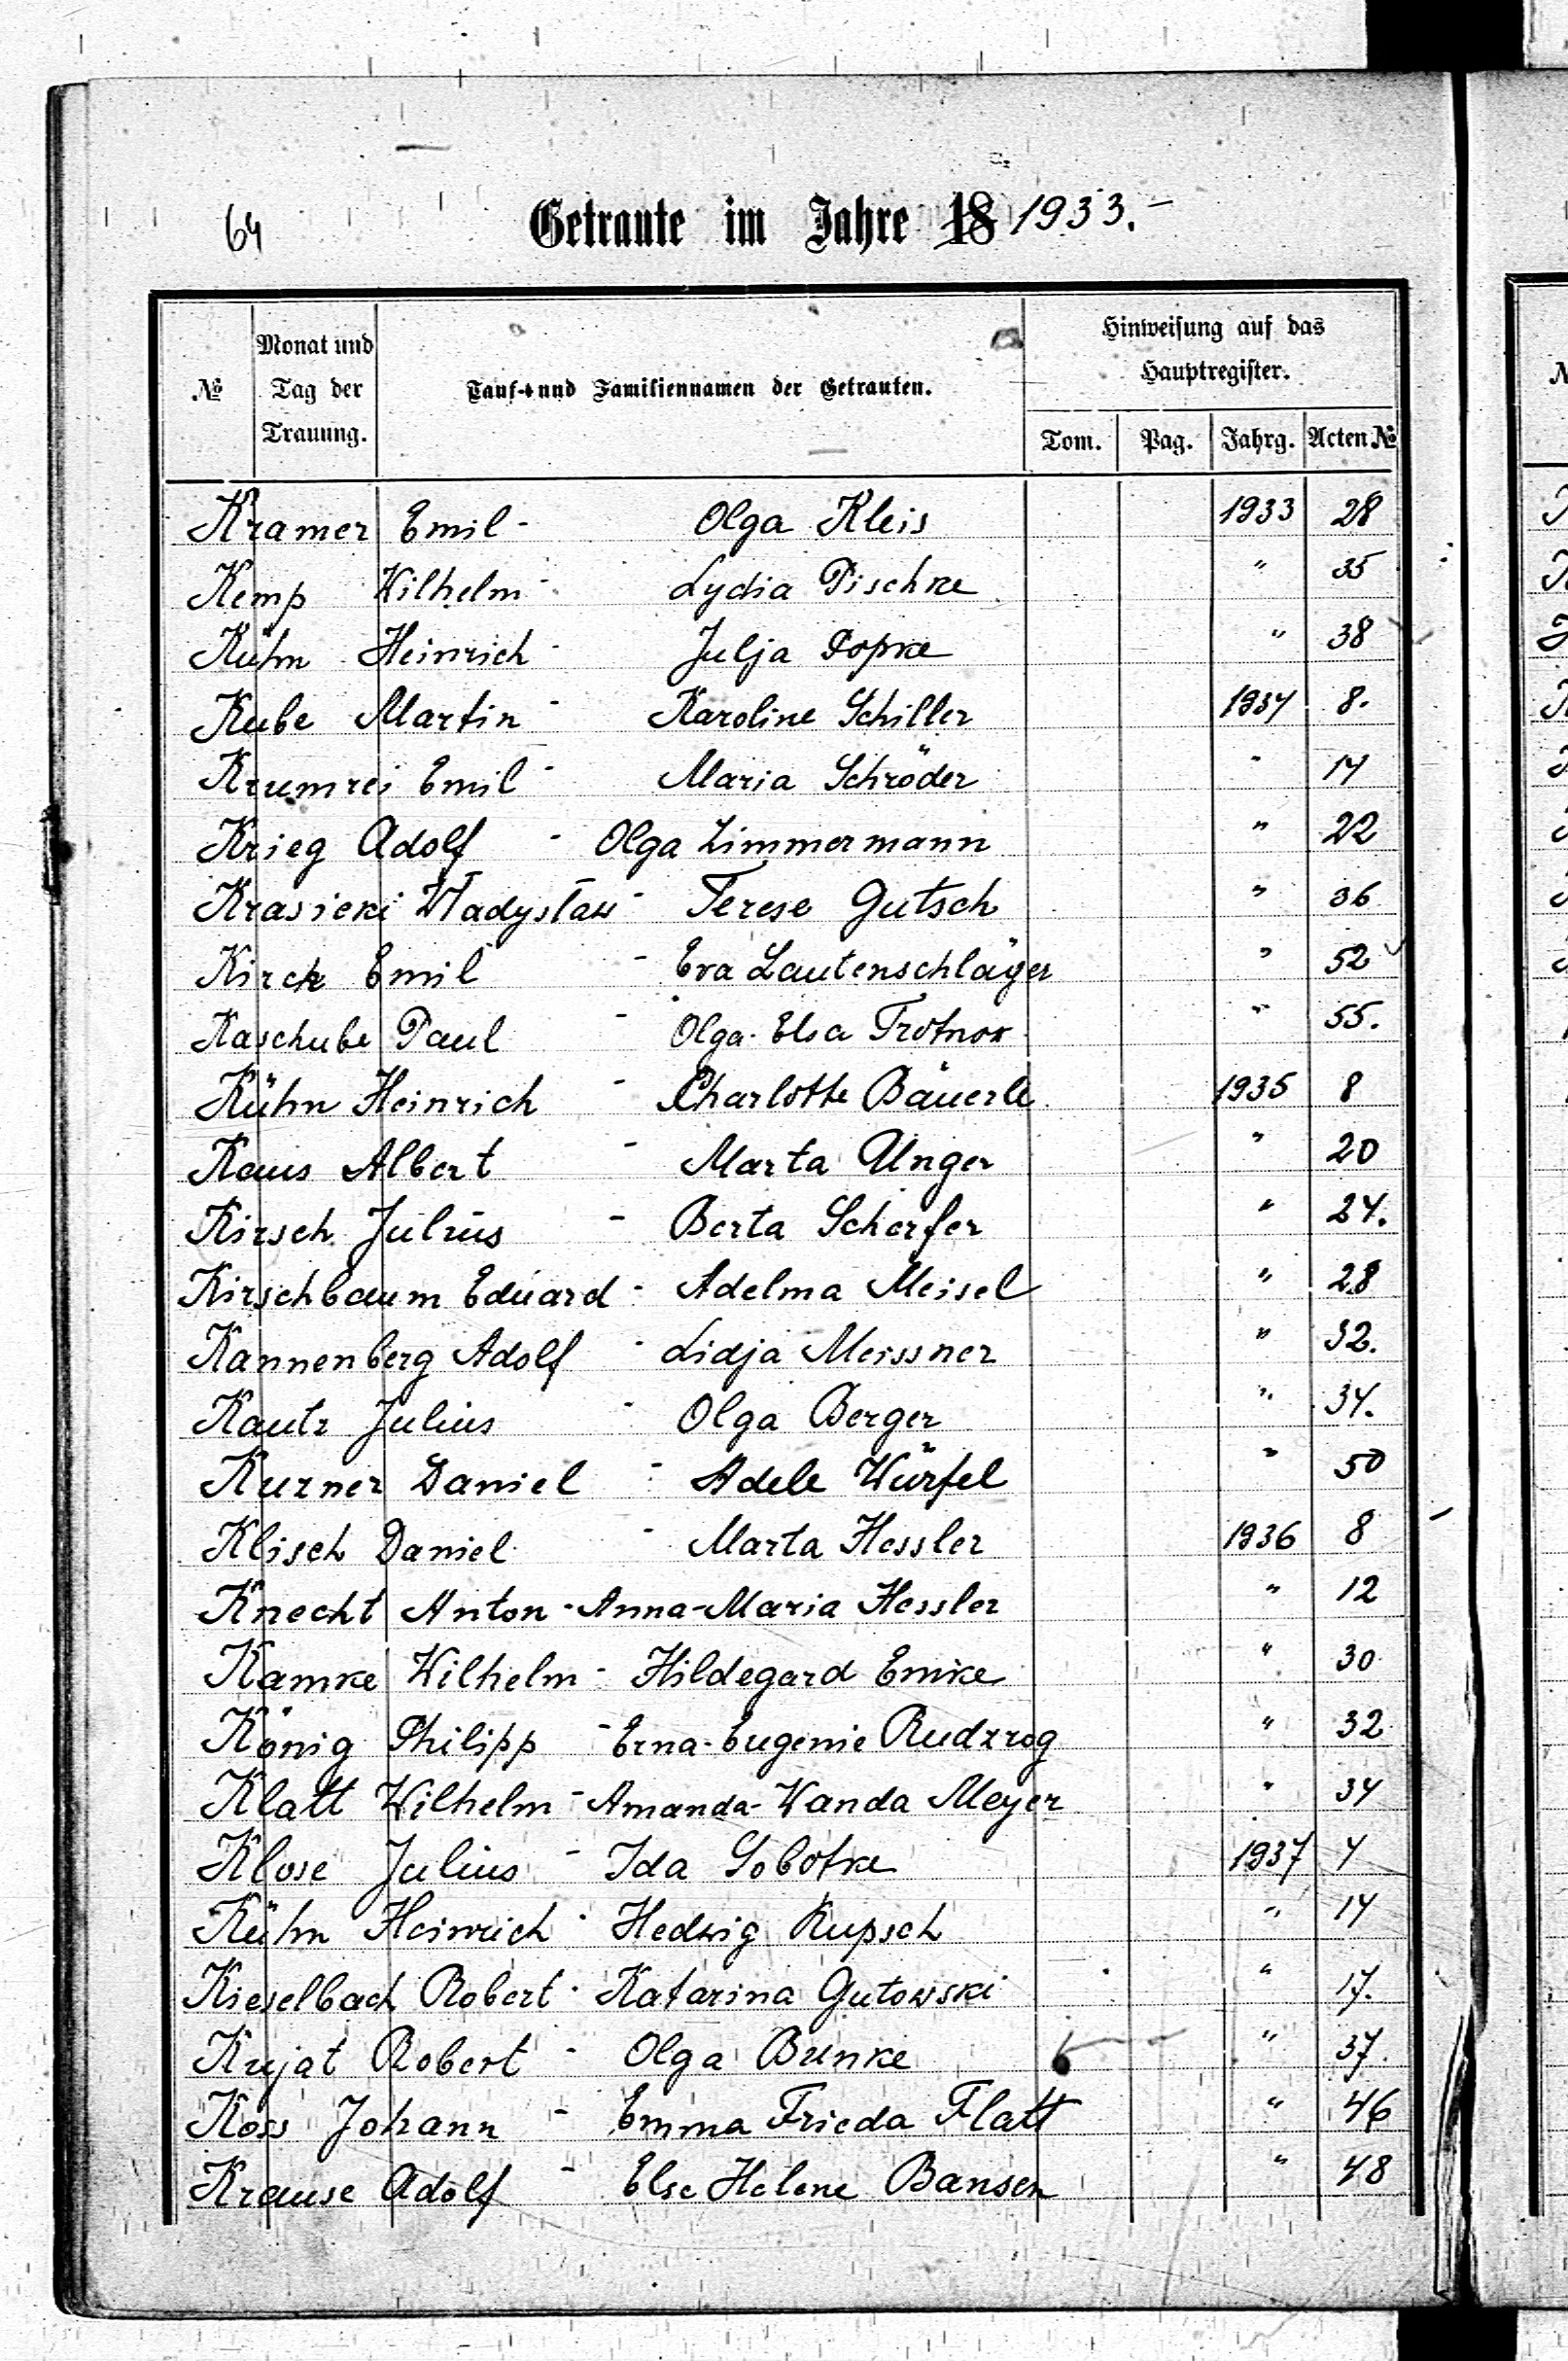 64 Getraute im Jahre 18 1933.-
№ Monat und Tag der Trauung. Tauf- und Familiennamen der Getrauten. Hinweisung auf das Hauptregister.
Tom. Pag. Jahrg. Acten №
Kramer Emil - Olga Kleis 1933 28
Kemp Wilhelm - Lydia Pischke " 35
Kühn Heinrich - Julja Popke " 38
Kube Martin - Karoline Schiller 1934 8.
Krumrei Emil - Maria Schröder " 14
Krieg Adolf - Olga Zimmermann " 22
Krasicki Władysław - Terese Gutsch " 36
Kirck Emil - Eva Lautenschläger " 52
Kaschube Paul - Olga-Elsa Trotnow " 55.
Kühn Heinrich - Charlotte Bäuerle 1935 8
Kaus Albert - Marta Unger " 20
Kirsch Julius - Berta Scherfer " 24.
Kirschbaum Eduard - Adelma Meisel " 28
Kannenberg Adolf - Lidja Meissner " 32.
Kautz Julius - Olga Berger " 34.
Kurner Daniel - Adele Würfel " 50
Klisch Daniel - Marta Hessler 1936 8
Knecht Anton - Anna-Maria Hessler " 12
Kamke Wilhelm - Hildegard Emke " 30
König Philipp - Erna-Eugenie Rudzrog " 32
Klatt Wilhelm - Amanda-Wanda Meyer " 34
Klose Julius - Ida Sobotke 1937 4
Kühn Heinrich - Hedwig Rupsch " 14
Kieselbach Robert - Katarina Gutowski " 17.
Kujat Robert - Olga Bunke " 37.
Koss Johann - Emma Frieda Flatt " 46
Krause Adolf - Else Helene Bansen " 48